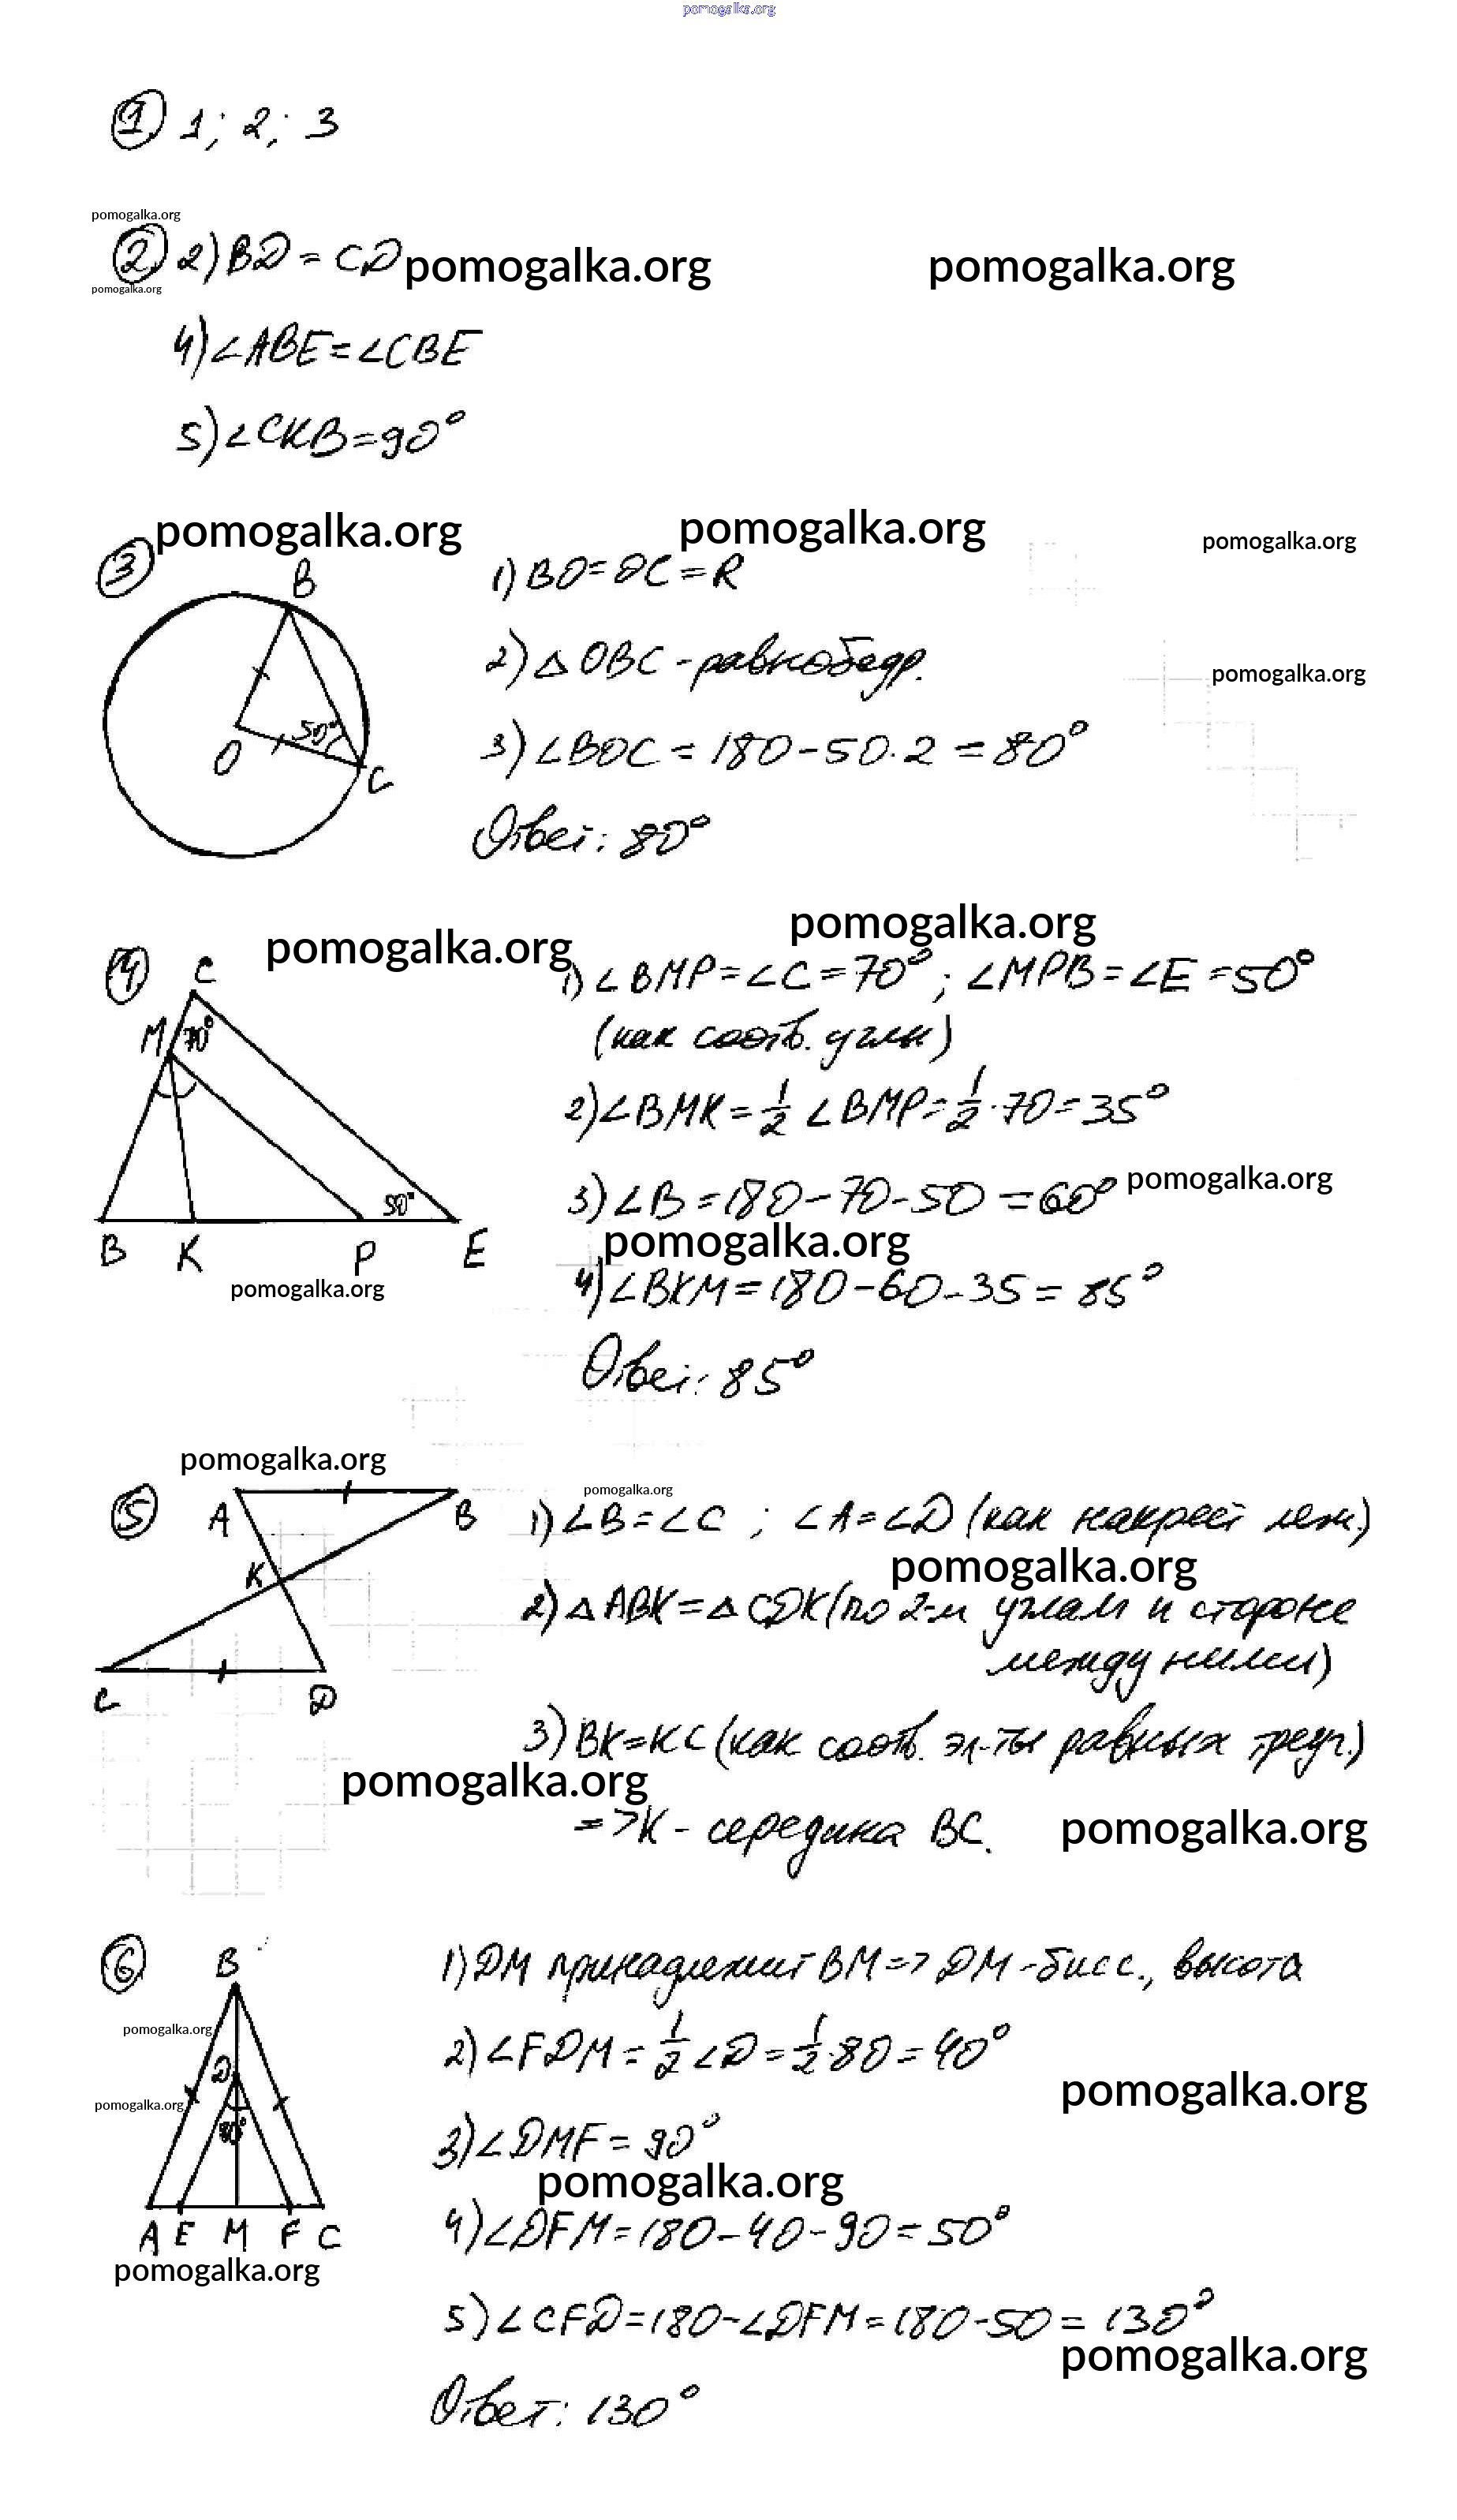 pomogalka.org
① 1; 2; 3
pomogalka.org
② 2) BD = CD pomogalka.org pomogalka.org
pomogalka.org
4) ∠ABE = ∠CBE
5) ∠CKB = 90°
pomogalka.org pomogalka.org pomogalka.org
③ B 1) BO = OC = R
2) △ OBC - равнобедр. pomogalka.org
50° O C
3) ∠BOC = 180 - 50 · 2 = 80°
Ответ: 80°
pomogalka.org pomogalka.org
④ C 1) ∠BMP = ∠C = 70°; ∠MPB = ∠E = 50°
M 70° (как соотв. углы)
2) ∠BMK = 1/2 ∠BMP = 1/2 · 70 = 35°
50° 3) ∠B = 180 - 70 - 50 = 60° pomogalka.org
B K P E pomogalka.org
pomogalka.org 4) ∠BKM = 180 - 60 - 35 = 85°
Ответ: 85°
pomogalka.org pomogalka.org
⑤ A B 1) ∠B = ∠C ; ∠A = ∠D (как накрест леж.)
K pomogalka.org
2) △ ABK = △ CDK (по 2-м углам и стороне
между ними)
C D
3) BK = KC (как соотв. эл-ты равных треуг.)
pomogalka.org
=> K - середина BC. pomogalka.org
⑥ B 1) DM принадлежит BM => DM - бисс., высота
pomogalka.org
D 2) ∠FDM = 1/2 ∠D = 1/2 · 80 = 40°
pomogalka.org pomogalka.org
80° 3) ∠DMF = 90°
pomogalka.org
A E M F C 4) ∠DFM = 180 - 40 - 90 = 50°
pomogalka.org
5) ∠CFD = 180 - ∠DFM = 180 - 50 = 130°
pomogalka.org
Ответ: 130°